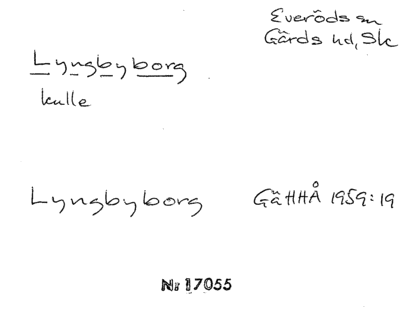 Everöds sn
Gärds hd, Sk
Lyngbyborg
kulle
Lyngbyborg GäHHÅ 1959:19
Nr 17055